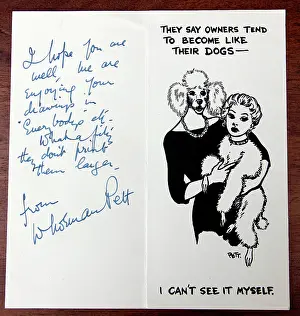 I hope you are
well, we are
enjoying your
drawings in
Everybody's etc.
What a pity
they don't print
them larger.
from
Norman Pett
THEY SAY OWNERS TEND
TO BECOME LIKE
THEIR DOGS—
PETT.
I CAN'T SEE IT MYSELF.